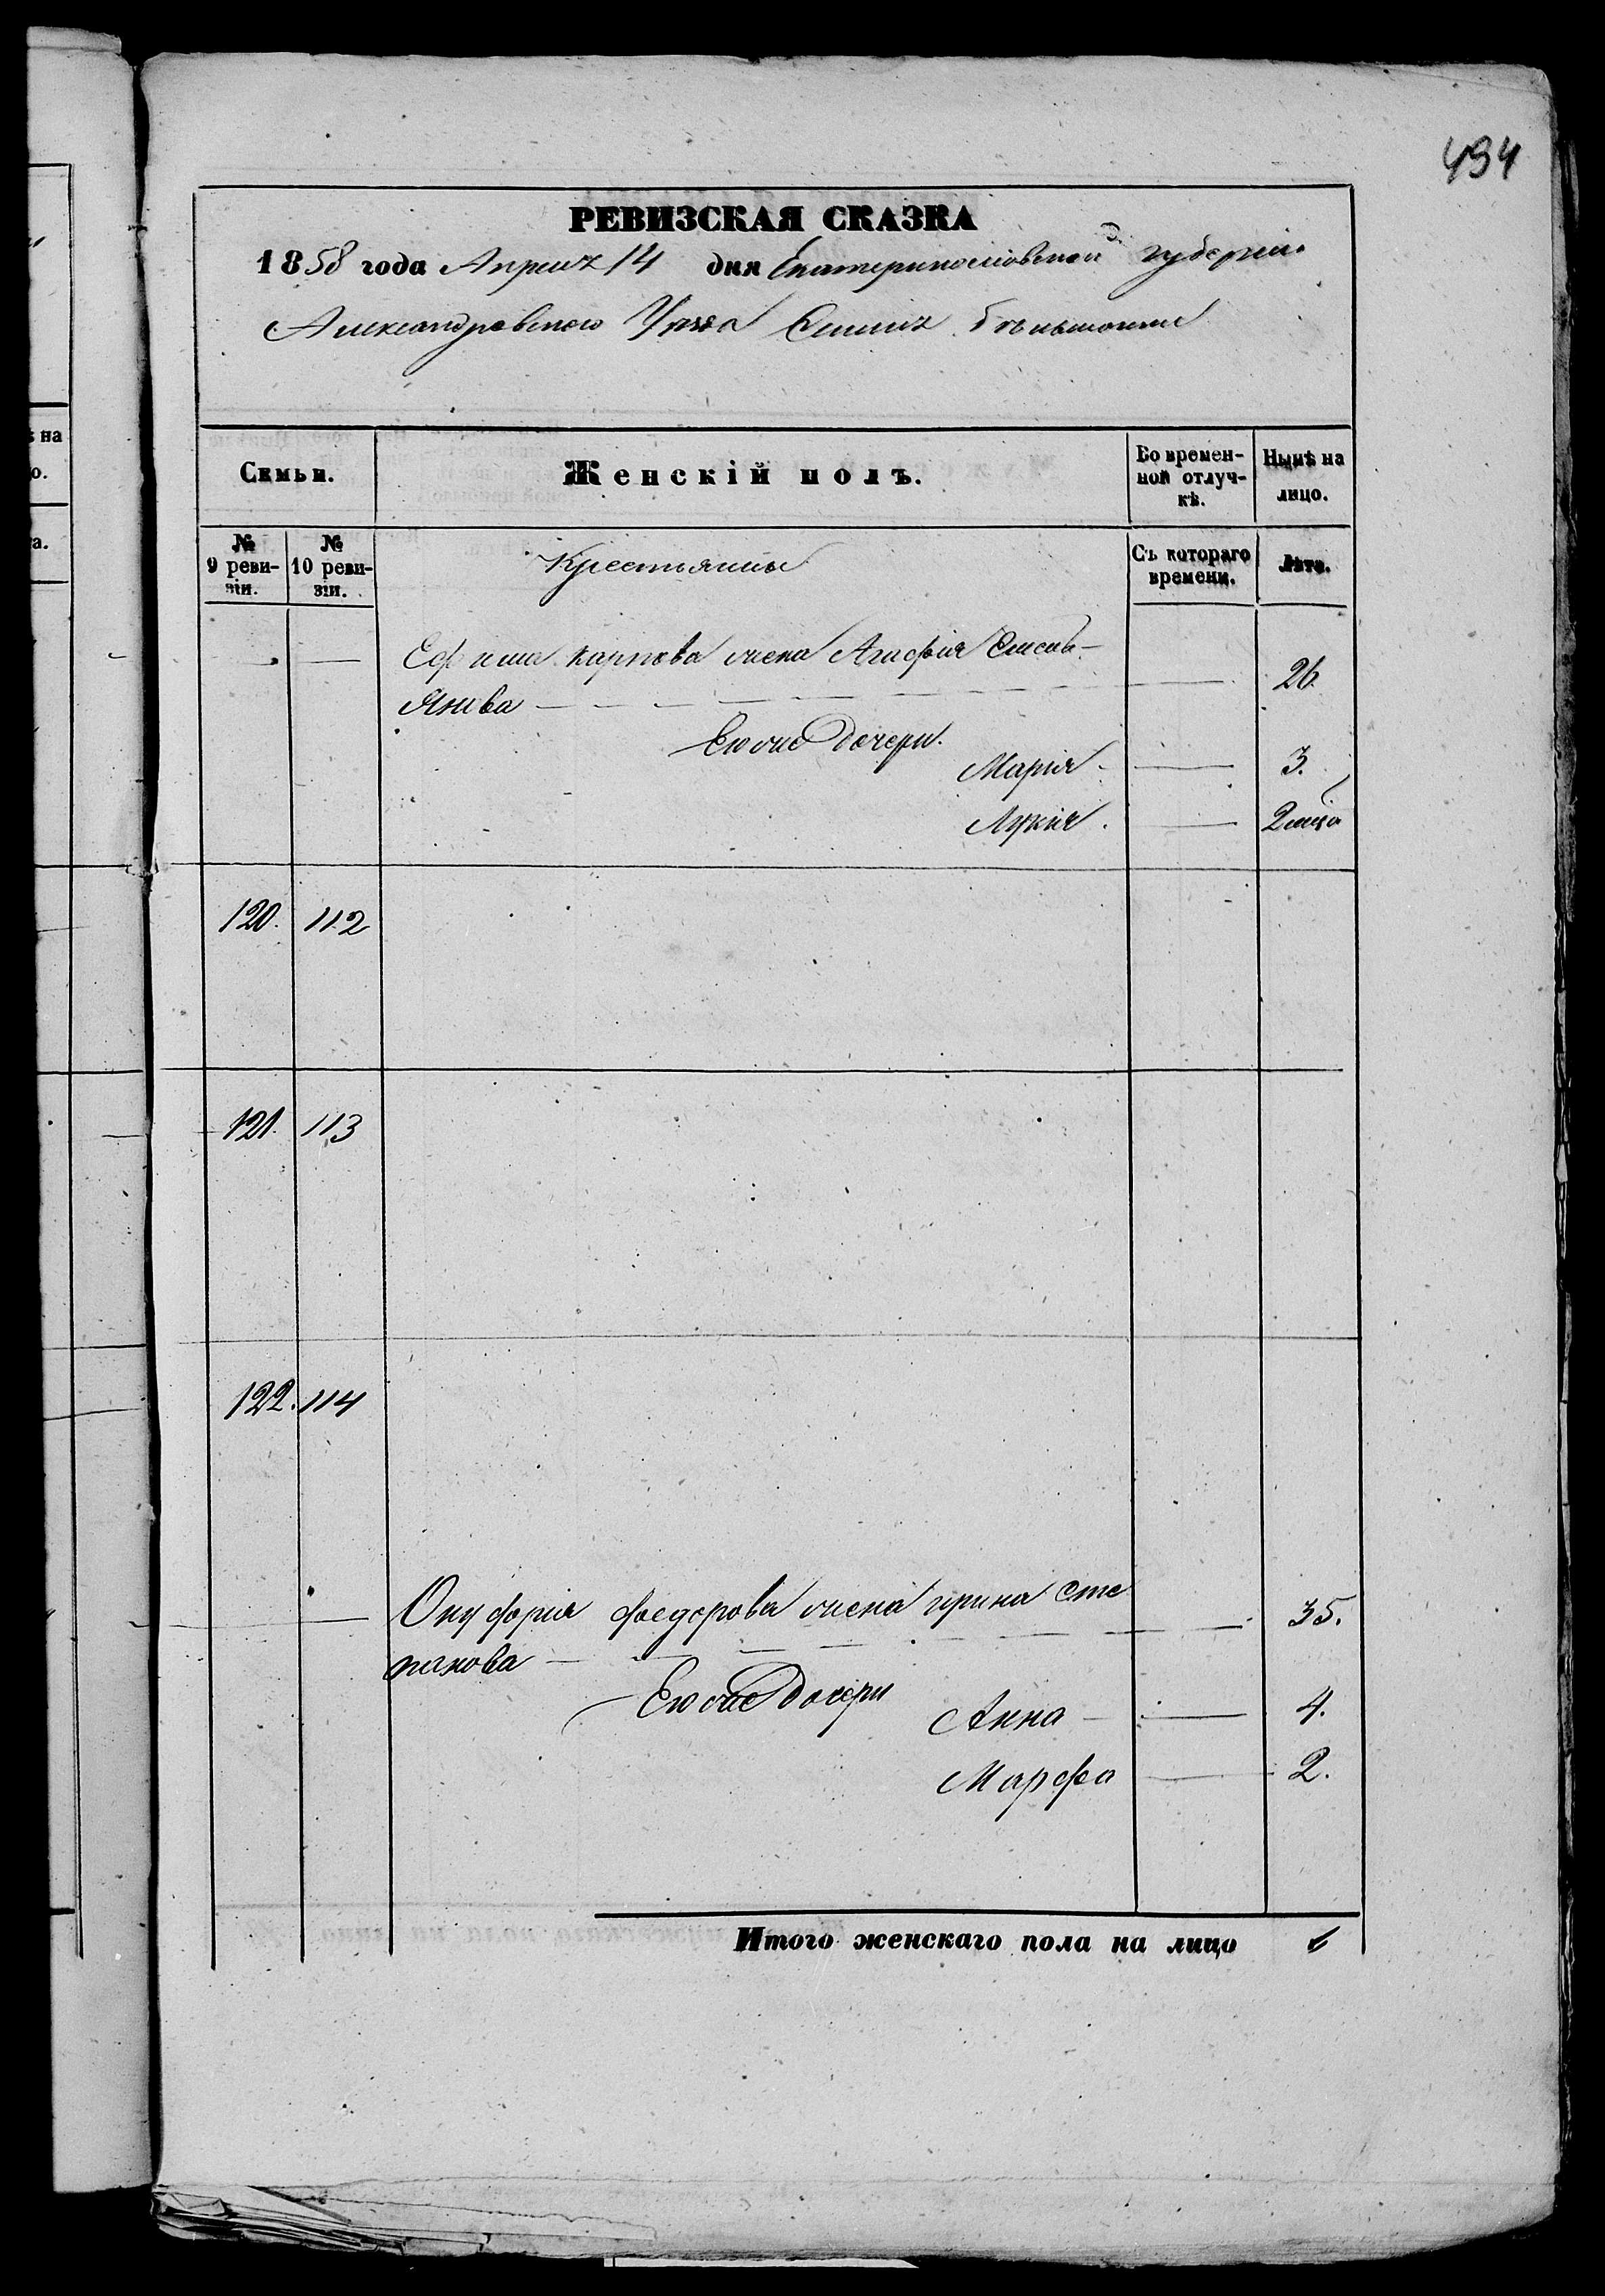 494
РЕВИЗСКАЯ СКАЗКА
1858 года Апреля 14 дня Екатеринославской Губерніи
Александровского Уезда Селения
Семьи.
Женскій полъ.
Во времен-
ной отлуч-
кѣ.
Нынѣ на
лицо.
№
9 реви-
зіи.
№
10 реви-
зіи.
Крестьянины
Съ котораго
времени.
Лѣта.
— — Ефима Карпова жена Агафія — 26
Ею же дочери.
Марія — 3.
Лукія — 2 меся
120. 112
121. 113
122. 114
— Онуфрія Федорова жена Ирина Сте — 35.
панова
Ею же дочери
Анна — 4.
Марфа — 2.
Итого женскаго пола на лицо 6
на
о.
а.